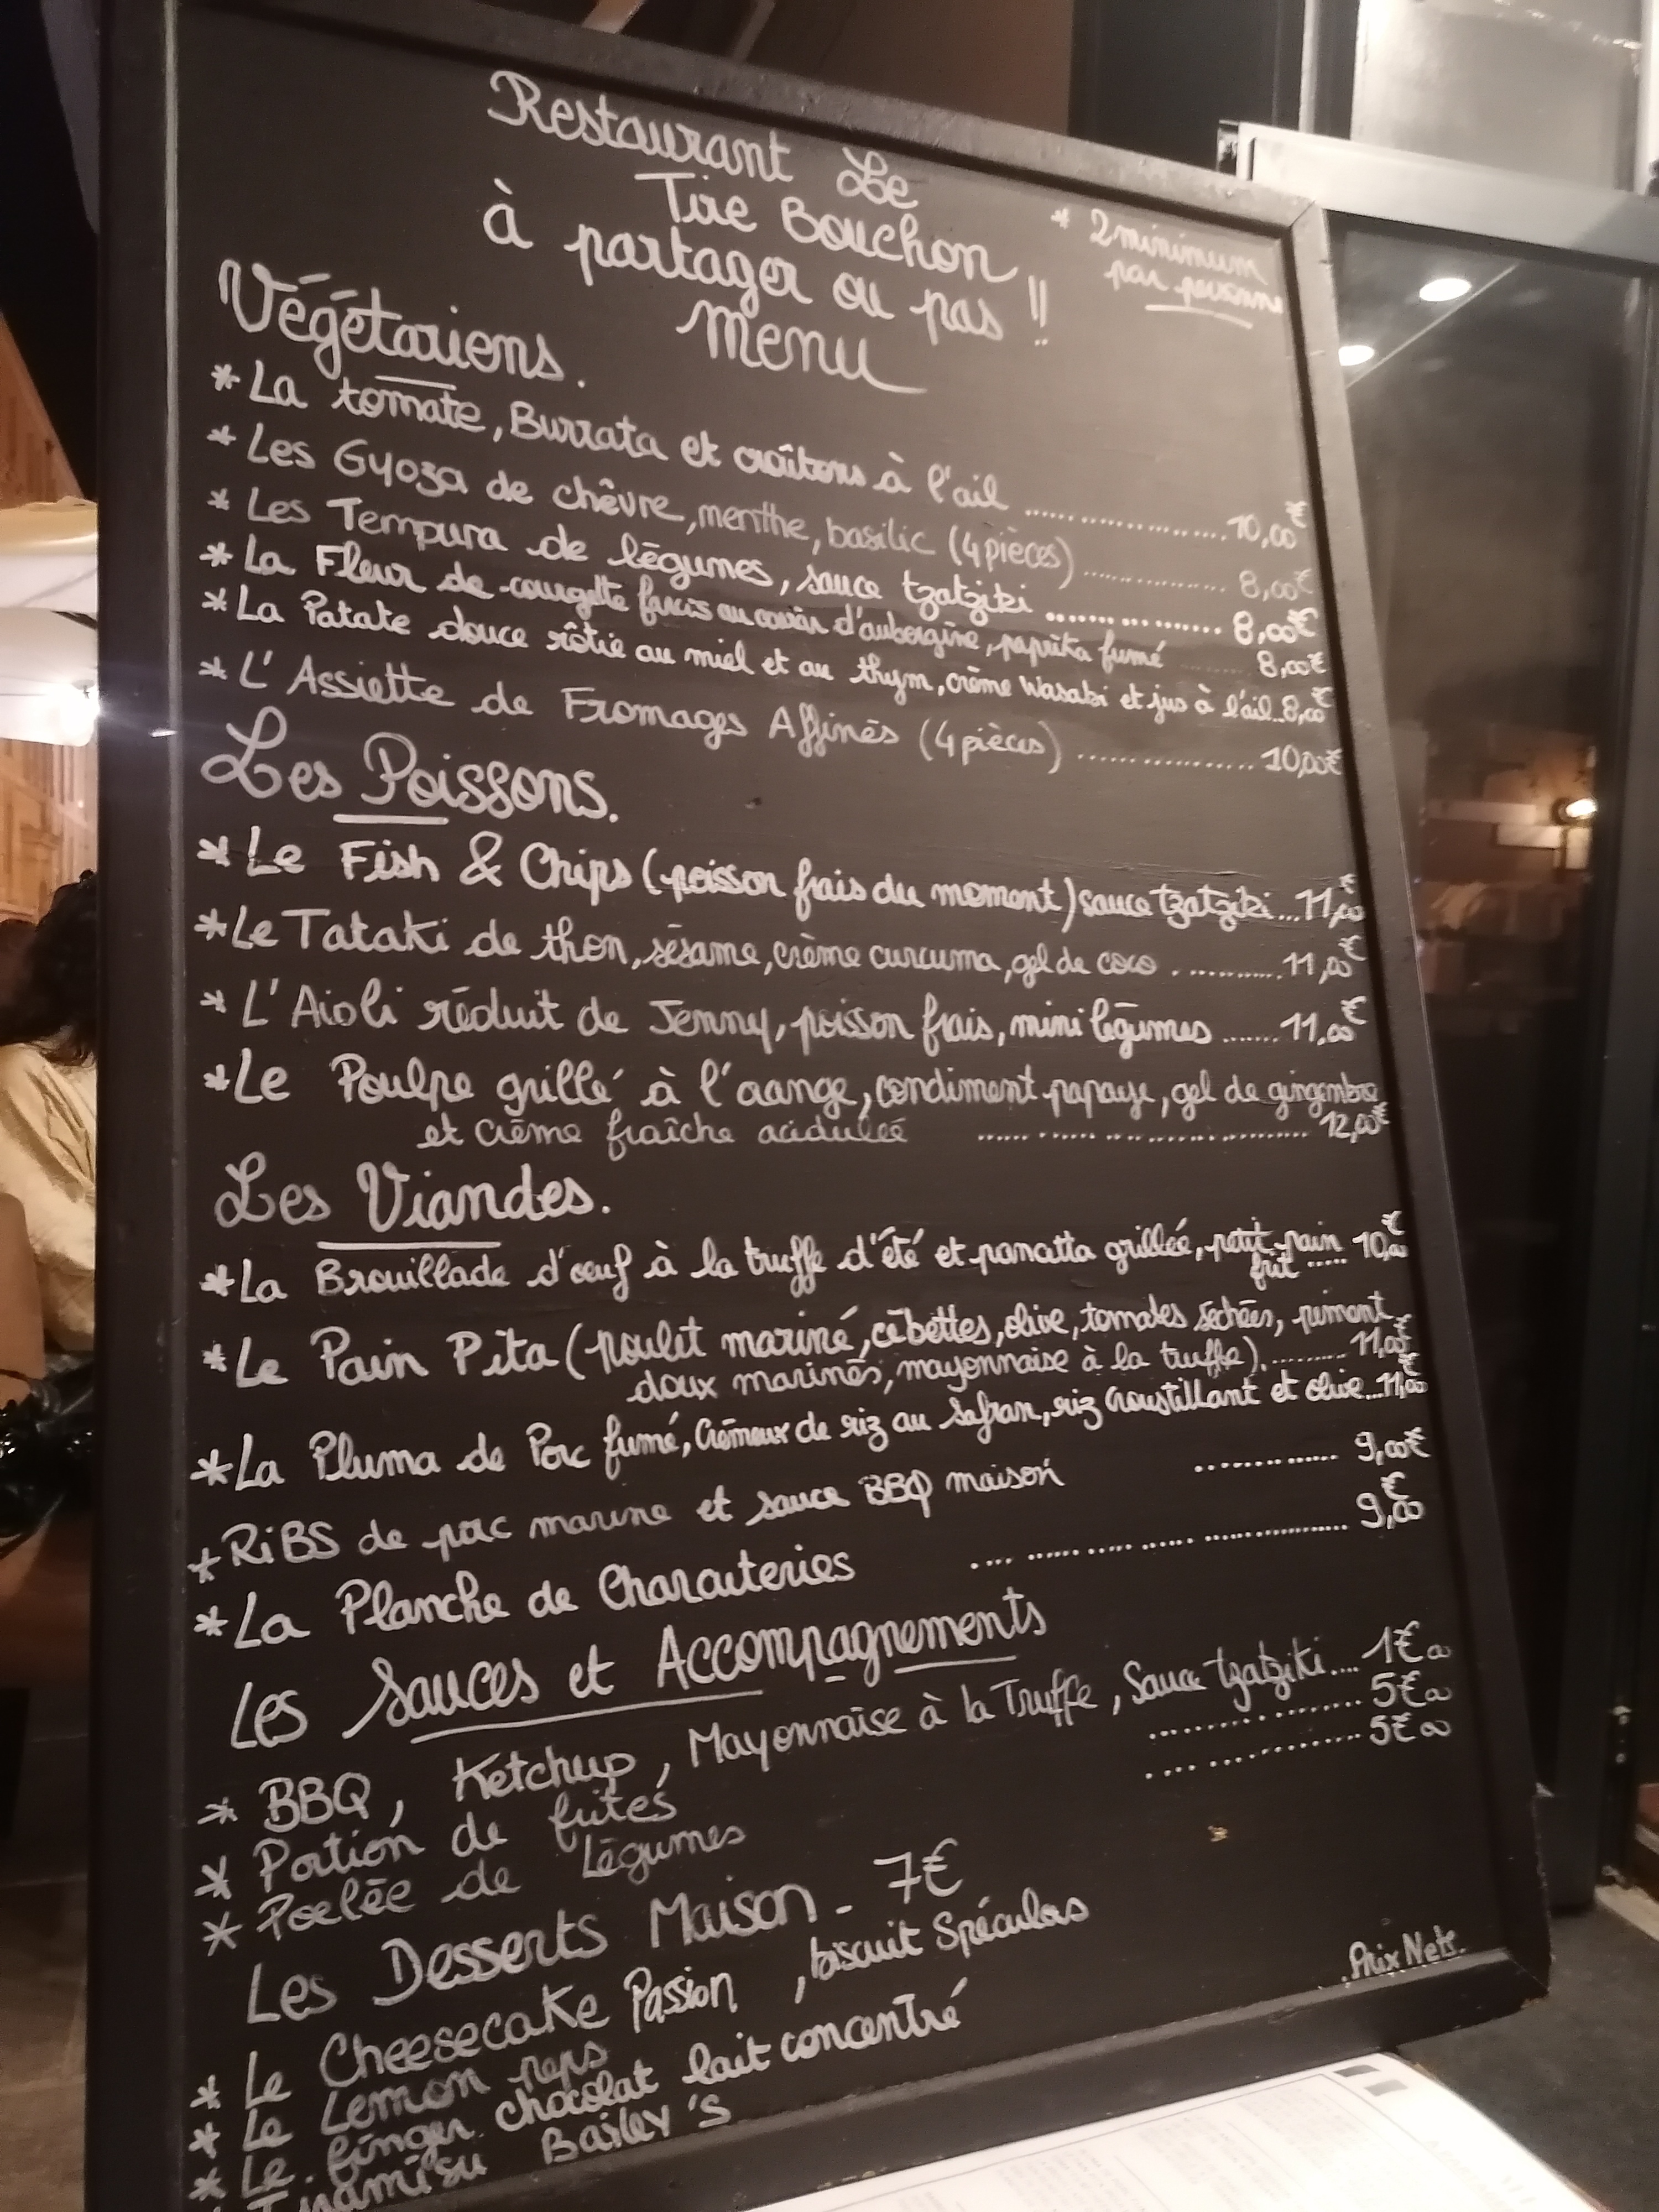 Restaurant Le
Tire Bouchon
à partager ou pas !!
Menu
* 2 minimum
par personne
Végétariens.
* La tomate, Burrata et croûtons à l'ail .................... 10,00€
* Les Gyoza de chèvre, menthe, basilic (4 pièces) ............... 8,00€
* Les Tempura de légumes, sauce tzatziki ................. 8,00€
* La Fleur de courgette farcis au caviar d'aubergine, paprika fumé ........ 8,00€
* La Patate douce rôtie au miel et au thym, crème Wasabi et jus à l'ail..8,00€
* L'Assiette de Fromages Affinés (4 pièces) ................. 10,00€
Les Poissons.
* Le Fish & Chips (poisson frais du moment) sauce tzatziki...11,00€
* Le Tataki de thon, sésame, crème curcuma, gel de coco ............ 11,00€
* L'Aioli réduit de Jenny, poisson frais, mini légumes ....... 11,00€
* Le Poulpe grillé à l'orange, condiment papaye, gel de gingembre
et crème fraîche acidulée ................................. 12,00€
Les Viandes.
* La Brouillade d'oeuf à la truffe d'été et pancetta grillée, petit pain 10,00€
frit .....
* Le Pain Pita (poulet mariné, cébettes, olive, tomates séchées, piment
doux marinés, mayonnaise à la truffe).......... 11,00€
* La Pluma de Porc fumé, Crémeux de riz au Safran, riz croustillant et olive...11,00€
* RiBS de porc marine et sauce BBQ maison .............. 9,00€
* La Planche de Charcuteries .................................. 9,00€
Les Sauces et Accompagnements
* BBQ, Ketchup, Mayonnaise à la Truffe, Sauce tzatziki.... 1€00
* Portion de frites ................... 5€00
* Poelée de Légumes ................... 5€00
Les Desserts Maison - 7€
* Le Cheesecake Passion, biscuit Spéculos
* Le Lemon
* Le finger chocolat lait concentré
* Tiramisu Bailey's
Prix Nets.